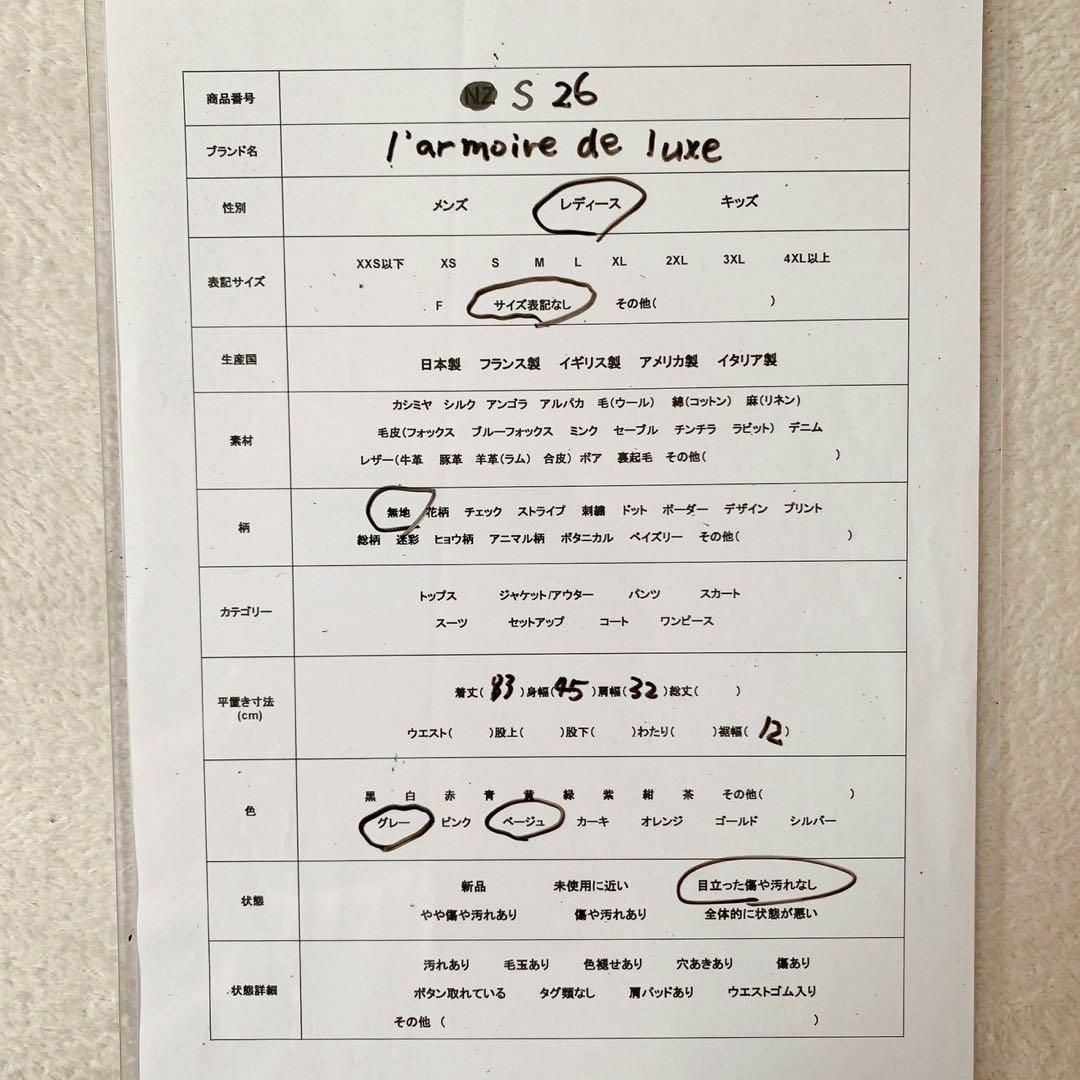 商品番号 NZ S 26
ブランド名 l'armoire de luxe
性別 メンズ レディース キッズ
XXS以下 XS S M L XL 2XL 3XL 4XL以上
表記サイズ
F サイズ表記なし その他( )
生産国 日本製 フランス製 イギリス製 アメリカ製 イタリア製
カシミヤ シルク アンゴラ アルパカ 毛(ウール) 綿(コットン) 麻(リネン)
素材 毛皮(フォックス ブルーフォックス ミンク セーブル チンチラ ラビット) デニム
レザー(牛革 豚革 羊革(ラム) 合皮) ボア 裏起毛 その他( )
無地 花柄 チェック ストライプ 刺繍 ドット ボーダー デザイン プリント
柄
総柄 迷彩 ヒョウ柄 アニマル柄 ボタニカル ペイズリー その他( )
トップス ジャケット/アウター パンツ スカート
カテゴリー
スーツ セットアップ コート ワンピース
着丈( 83 )身幅( 45 )肩幅( 32 )総丈( )
平置き寸法
(cm)
ウエスト( )股上( )股下( )わたり( )裾幅( 12 )
黒 白 赤 青 黄 緑 紫 紺 茶 その他( )
色
グレー ピンク ベージュ カーキ オレンジ ゴールド シルバー
新品 未使用に近い 目立った傷や汚れなし
状態
やや傷や汚れあり 傷や汚れあり 全体的に状態が悪い
汚れあり 毛玉あり 色褪せあり 穴あきあり 傷あり
状態詳細 ボタン取れている タグ類なし 肩パッドあり ウエストゴム入り
その他 ( )